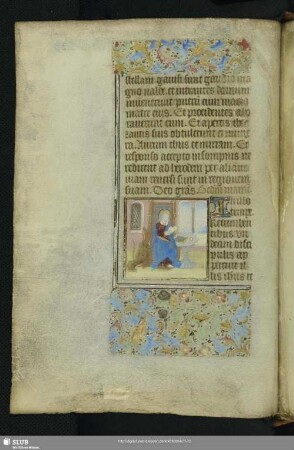 stellam gauisi sunt gaudio ma
gno valde. et intrantes domum
inuenerunt puerū cum maria
matre eius. Et procidentes ado
rauerunt eum. Et apertis the
sauris suis obtulerunt ei mune
ra. Aurum thus et mirram. Et
responso accepto in sompnis ne
redirent ad herodem per aliam
uiam reuersi sunt in regionem
suam. Deo grās
In illo
tempore
Recumben
tibus vn
decim disci
pulis ap
paruit il
lis ihesus et
SLUB